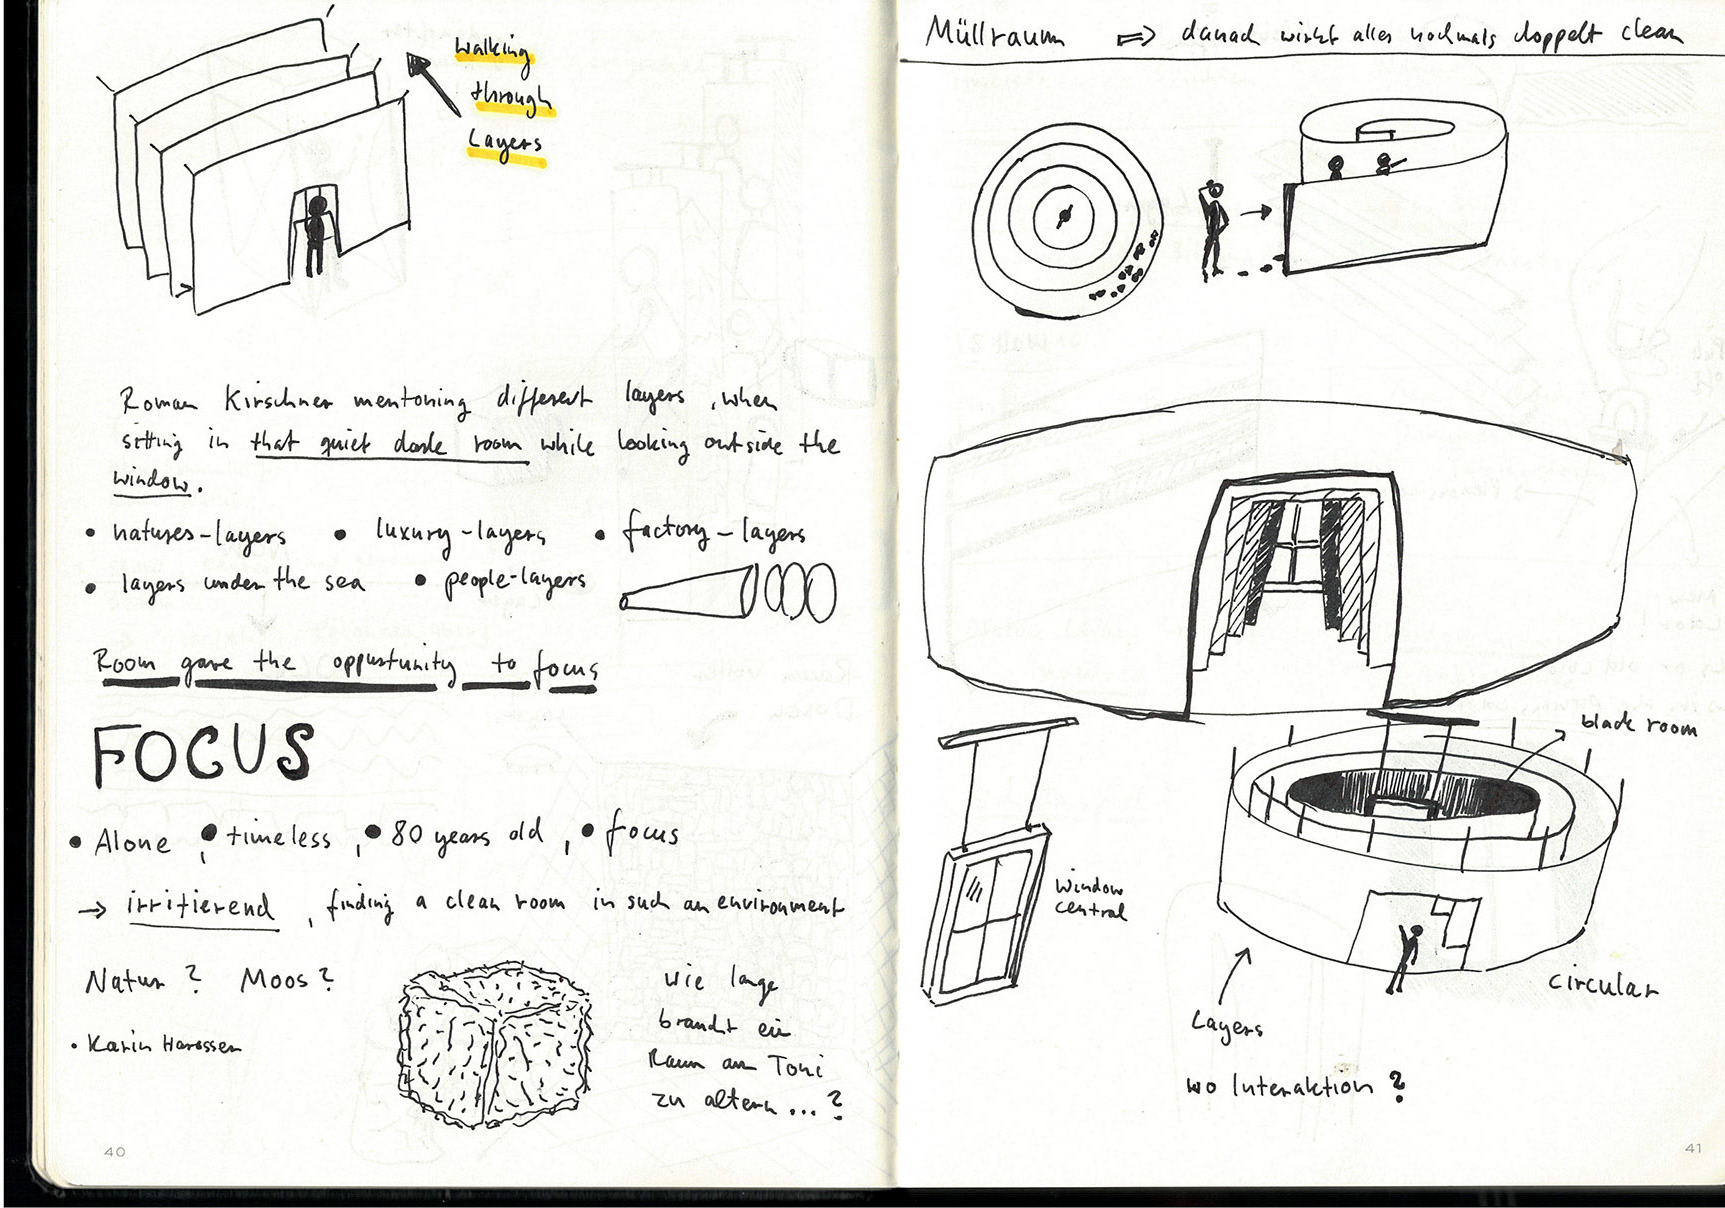 walking
through
Layers
Roman Kirschner mentoning different layers, when
sitting in that quiet dark room while looking outside the
window.
• natures-layers • luxury-layers • factory-layers
• layers under the sea • people-layers
Room gave the oppurtunity to focus
FOCUS
• Alone, • timeless, • 80 years old, • focus
→ irritierend, finding a clean room in such an environment
Natur? Moos?
• Karin Harassen
wie lange
braucht ein
Raum am Toni
zu altern...?
40
Müllraum ⇒ danach wirkt alles nochmals doppelt clean
black room
window
central
circular
Layers
wo Interaktion?
41